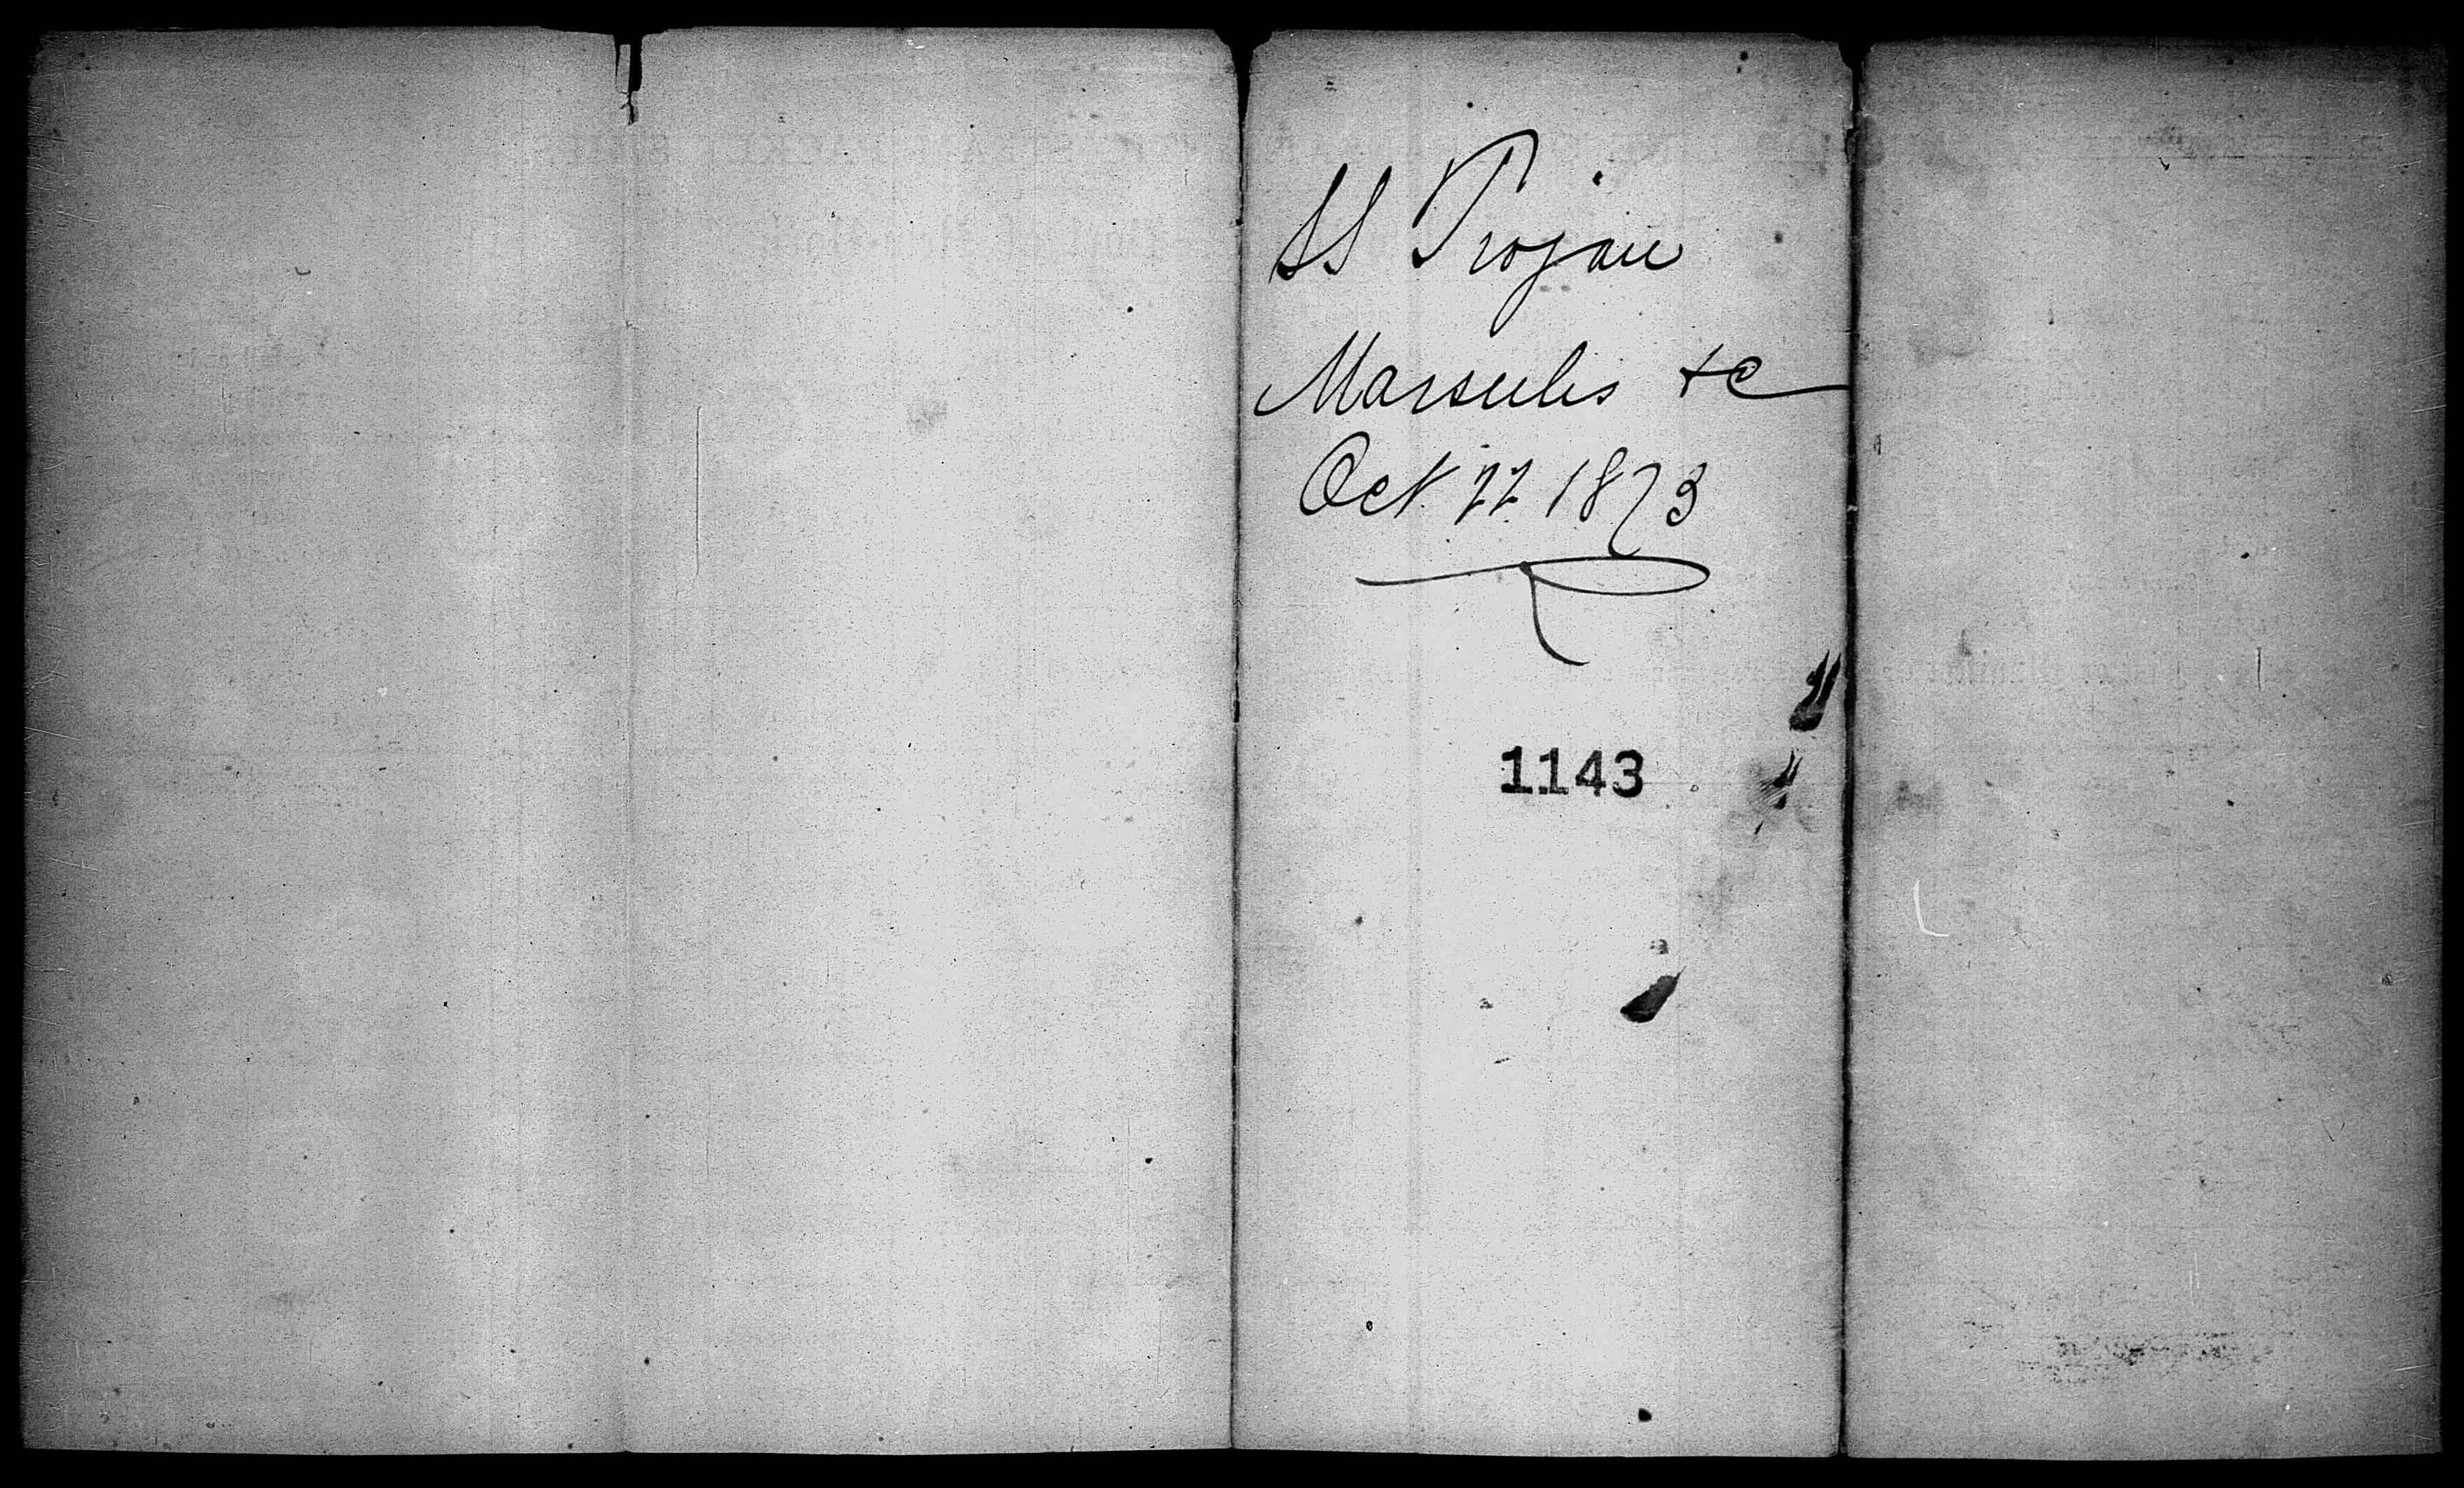 SS Trojan
Marseilles &c
Oct 22 1873
1143